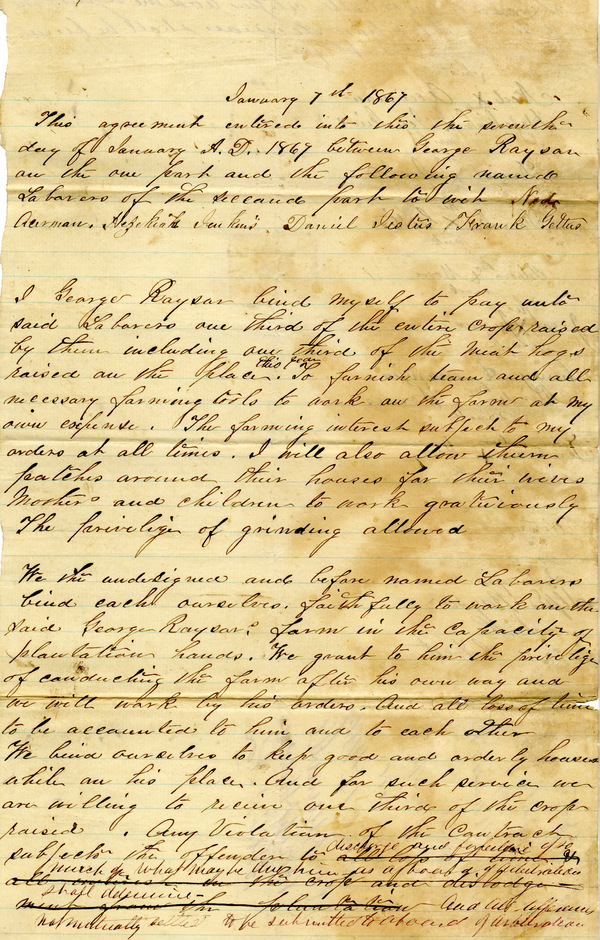 January 7th 1867
This agreement entered into this the seventh
day of January A.D. 1867 between George Raysar
on the one part and the following named
Laborers of the second part to wit
Acerman. Hezekiah Jenkins. Daniel Frank
I George Raysar bind myself to pay unto
said Laborers one third of the entire crop raised
by them including one third of the meat hogs
raised on the place this year. To furnish team and all
necessary farming tools to work on the farm at my
own expense. The farming interest subject to my
orders at all times. I will also allow them
patches around their houses for their wives
Mothers and children to work gratuiously
The privilige of grinding allowed
We the undesigned and before named Laborers
bind each ourselves. faithfully to work on the
said George Raysar's farm in the capacity of
plantation hands. We grant to him the privilige
of conducting the farm after his own way and
we will work by his orders. And all loss of time
to be accounted to him and to each other
We bind ourselves to keep good and orderly houses
while on his place. And for such service we
are willing to receive one third of the crop
raised. Any Violation of the Contract
discharge and forfeiture of so
subjects the offender to
much of what may be due him as a board of arbitration
in the crop and
shall determine
And all differences
not mutually settled to be submitted to a board of arbitration